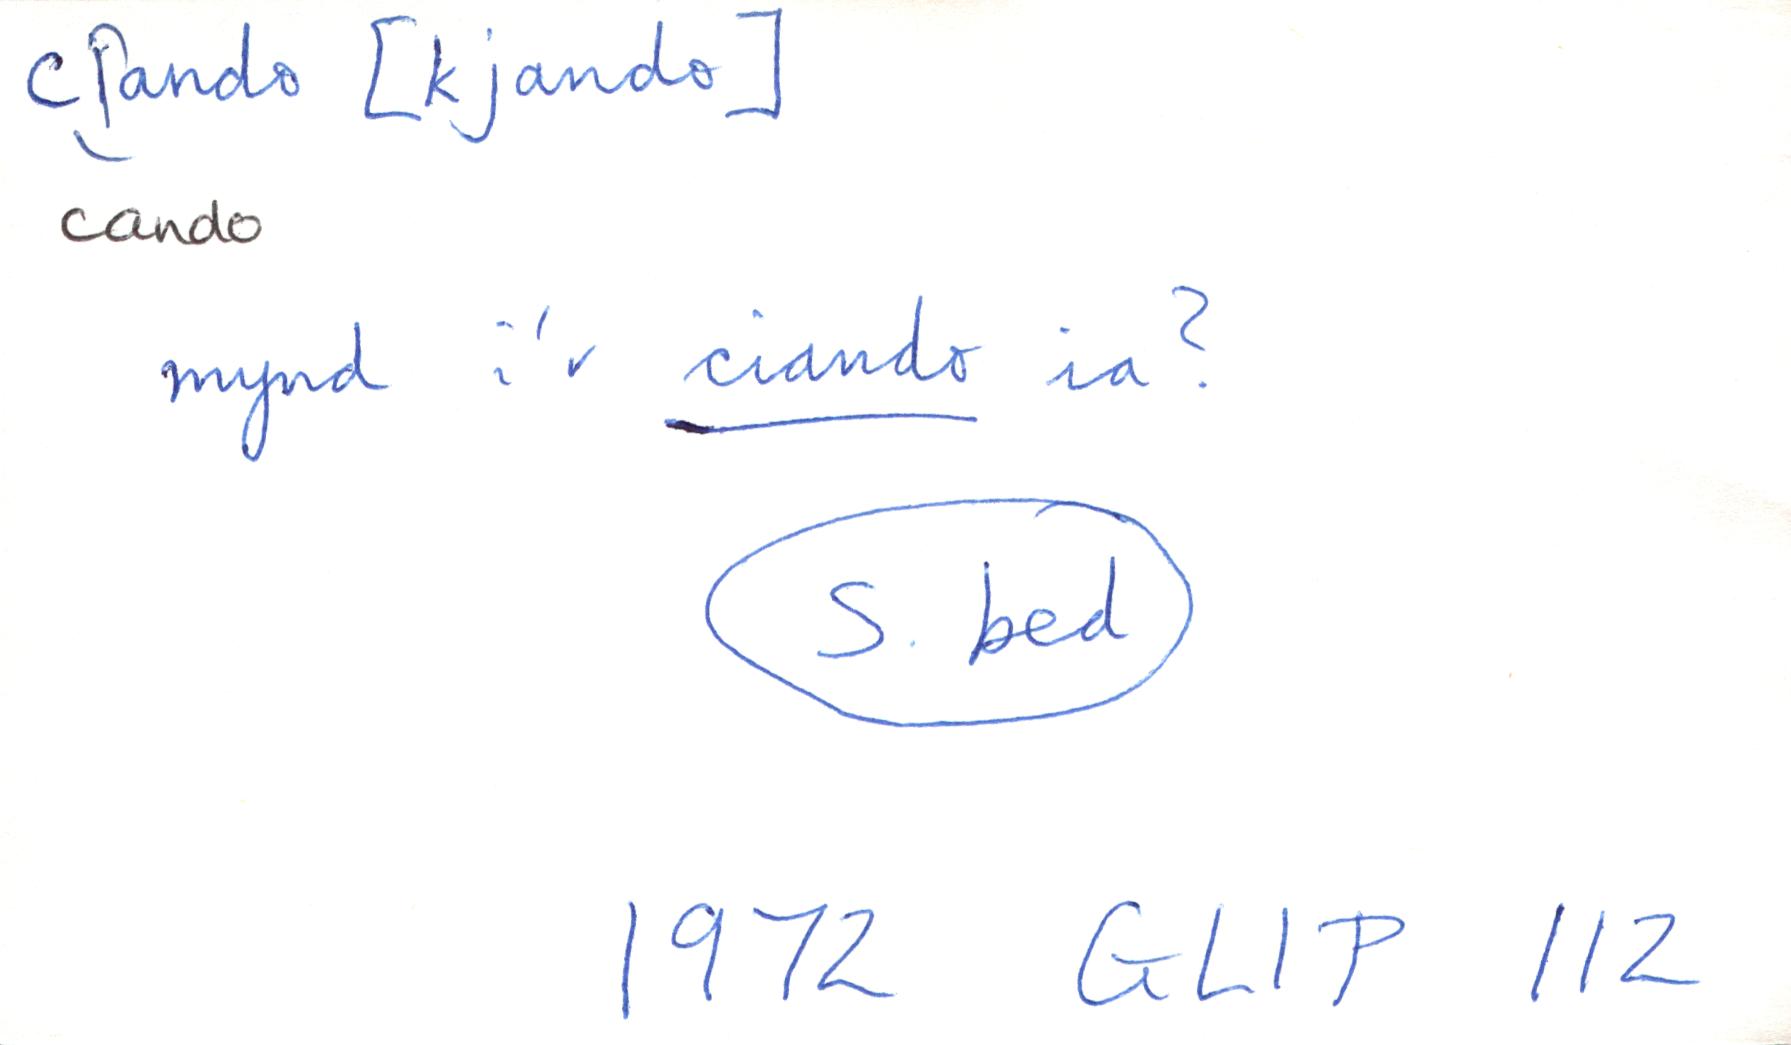 ciando [kjando]
cando
mynd i'r ciando ia?
S. bed
1972 GLIP 112